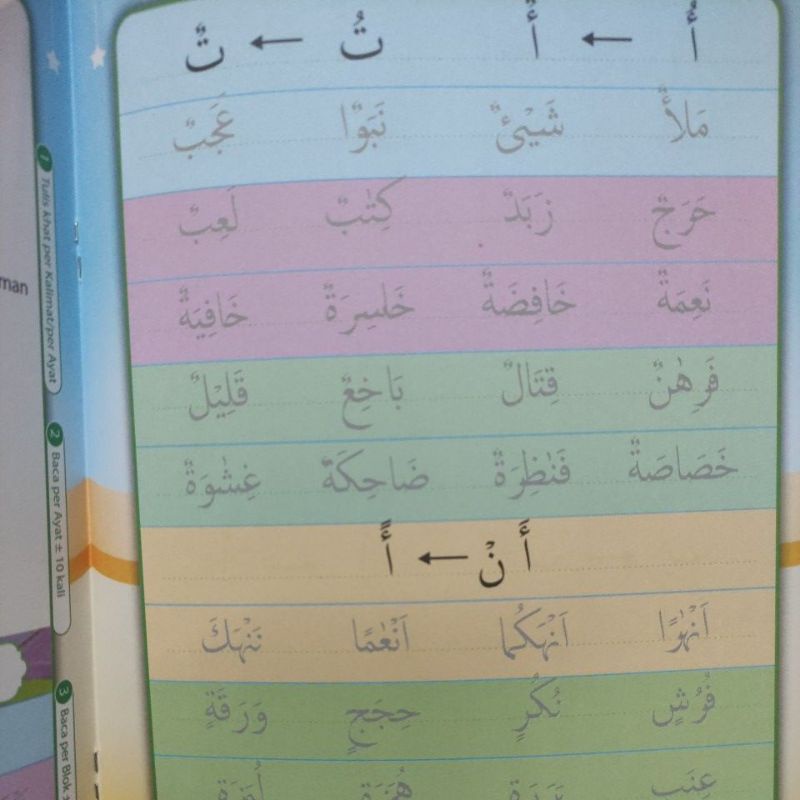 أُ ← أٌ تُ ← تٌ
مَلأٌ شَيْئٌ نَبَوًّا عَجَبٌ
حَرَجٌ زَبَدٌ كِتٰبٌ لَعِبٌ
نَعِمَةٌ خَافِضَةٌ خَاسِرَةٌ خَافِيَةٌ
فَرِهٰنٌ قِتَالٌ بَاخِعٌ قَلِيْلٌ
خَصَاصَةٌ فَنٰظِرَةٌ ضَاحِكَةٌ غِشٰوَةٌ
أَ نْ ← أً
اَنْهٰرًا اَنْهَكُمَا اَنْعٰمًا نَنْهَكَ
فُرُشٍ نُكُرٍ حِجَجٍ وَرَقَةٍ
عِنَبٍ
man
1 Tulis khat per Kalimat/per Ayat
2 Baca per Ayat ± 10 kali
3 Baca per Blok ±